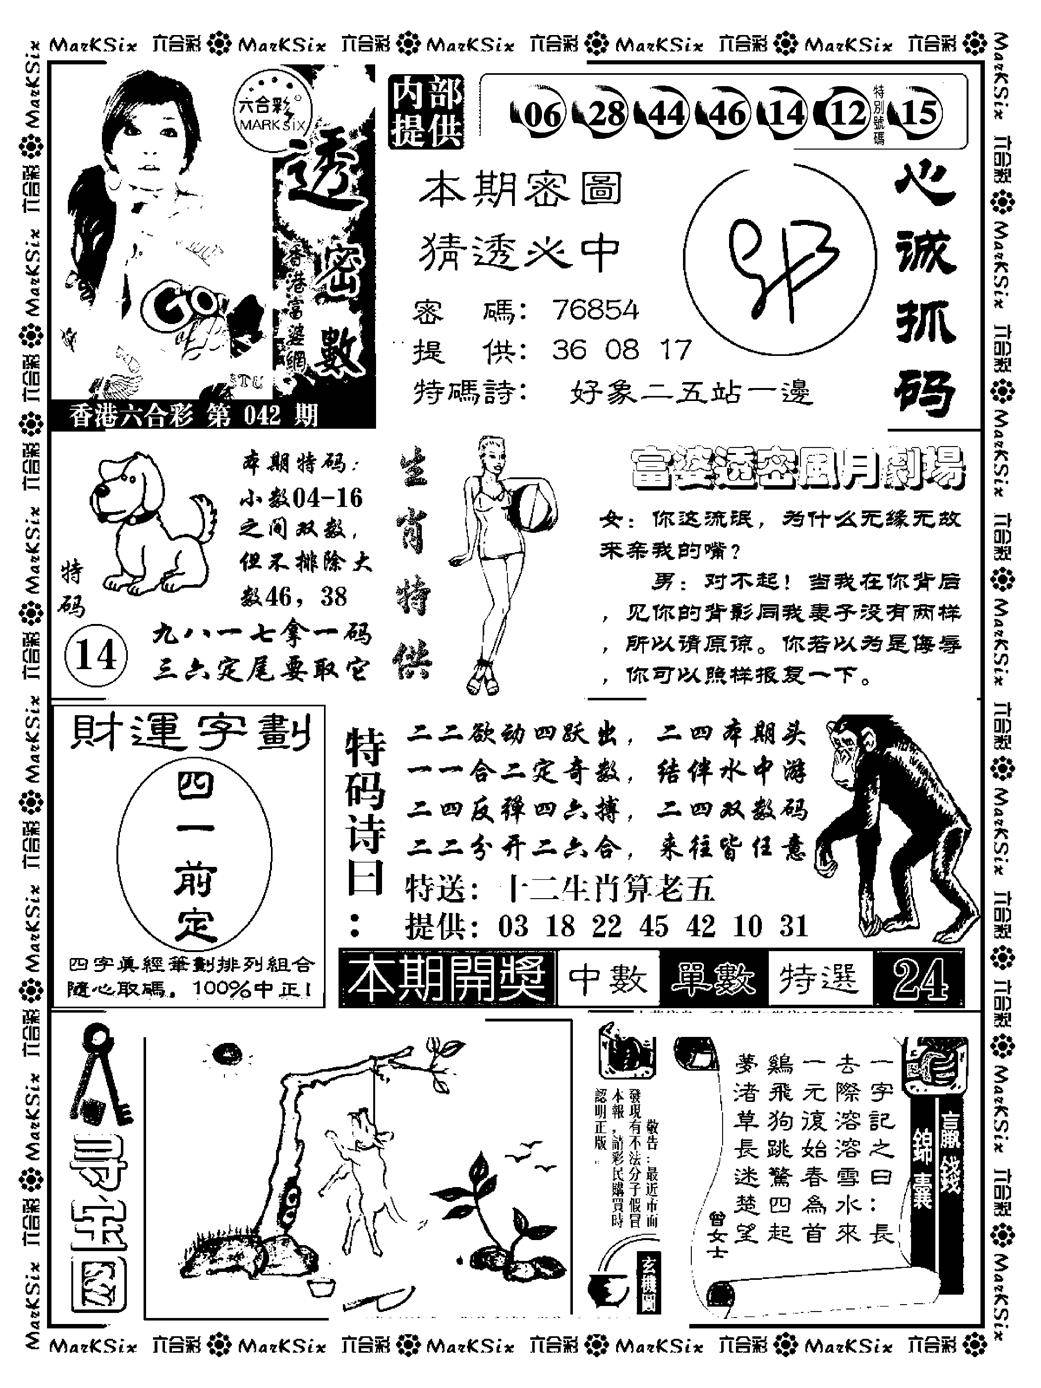 MarKSix 六合彩 MarKSix 六合彩 MarKSix 六合彩 MarKSix 六合彩 MarKSix 六合彩
六合彩
MARKSIX
透密數
香港富婆網
香港六合彩 第 042 期
内部
提供
06 28 44 46 14 12 特別號碼 15
本期密圖
猜透必中
密 碼: 76854
提 供: 36 08 17
特碼詩: 好象二五站一邊
心诚抓码
特码
14
本期特码:
小数04-16
之间双数,
但不排除大
数46, 38
九八一七拿一码
三六定尾要取它
生肖特供
富婆透密風月劇場
女: 你这流氓, 为什么无缘无故
来亲我的嘴?
男: 对不起! 当我在你背后
, 见你的背影同我妻子没有两样
, 所以请原谅。你若以为是侮辱
, 你可以照样报复一下。
財運字劃
四一前定
四字真經筆劃排列組合
隨心取碼, 100%中正!
特码诗曰:
二二欲动四跃出, 二四本期头
一一合二定奇数, 结伴水中游
二四反弹四六搏, 二四双数码
二二分开二六合, 来往皆任意
特送: 十二生肖算老五
提供: 03 18 22 45 42 10 31
本期開獎 中數 單數 特選 24
寻宝图
敬告:最近市面
發現有不法分子假冒
本報,請彩民購買時
認明正版。
玄機圖
贏錢
錦囊
一字記之曰:長
去際溶溶雪水來
一元復始春為首
鷄飛狗跳驚四起
夢渚草長迷楚望
曾女士
MarKSix 六合彩 MarKSix 六合彩 MarKSix 六合彩 MarKSix 六合彩 MarKSix 六合彩